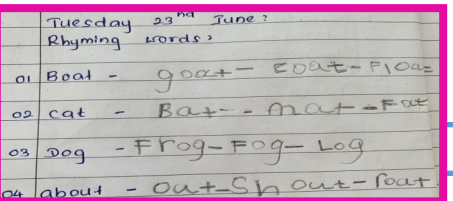 Tuesday 23nd June:
Rhyming words:
01 Boat - goat - coat - Float
02 cat - Bat - - mat - Fat
03 Dog - Frog - Fog - Log
04 about - out - Shout - rout